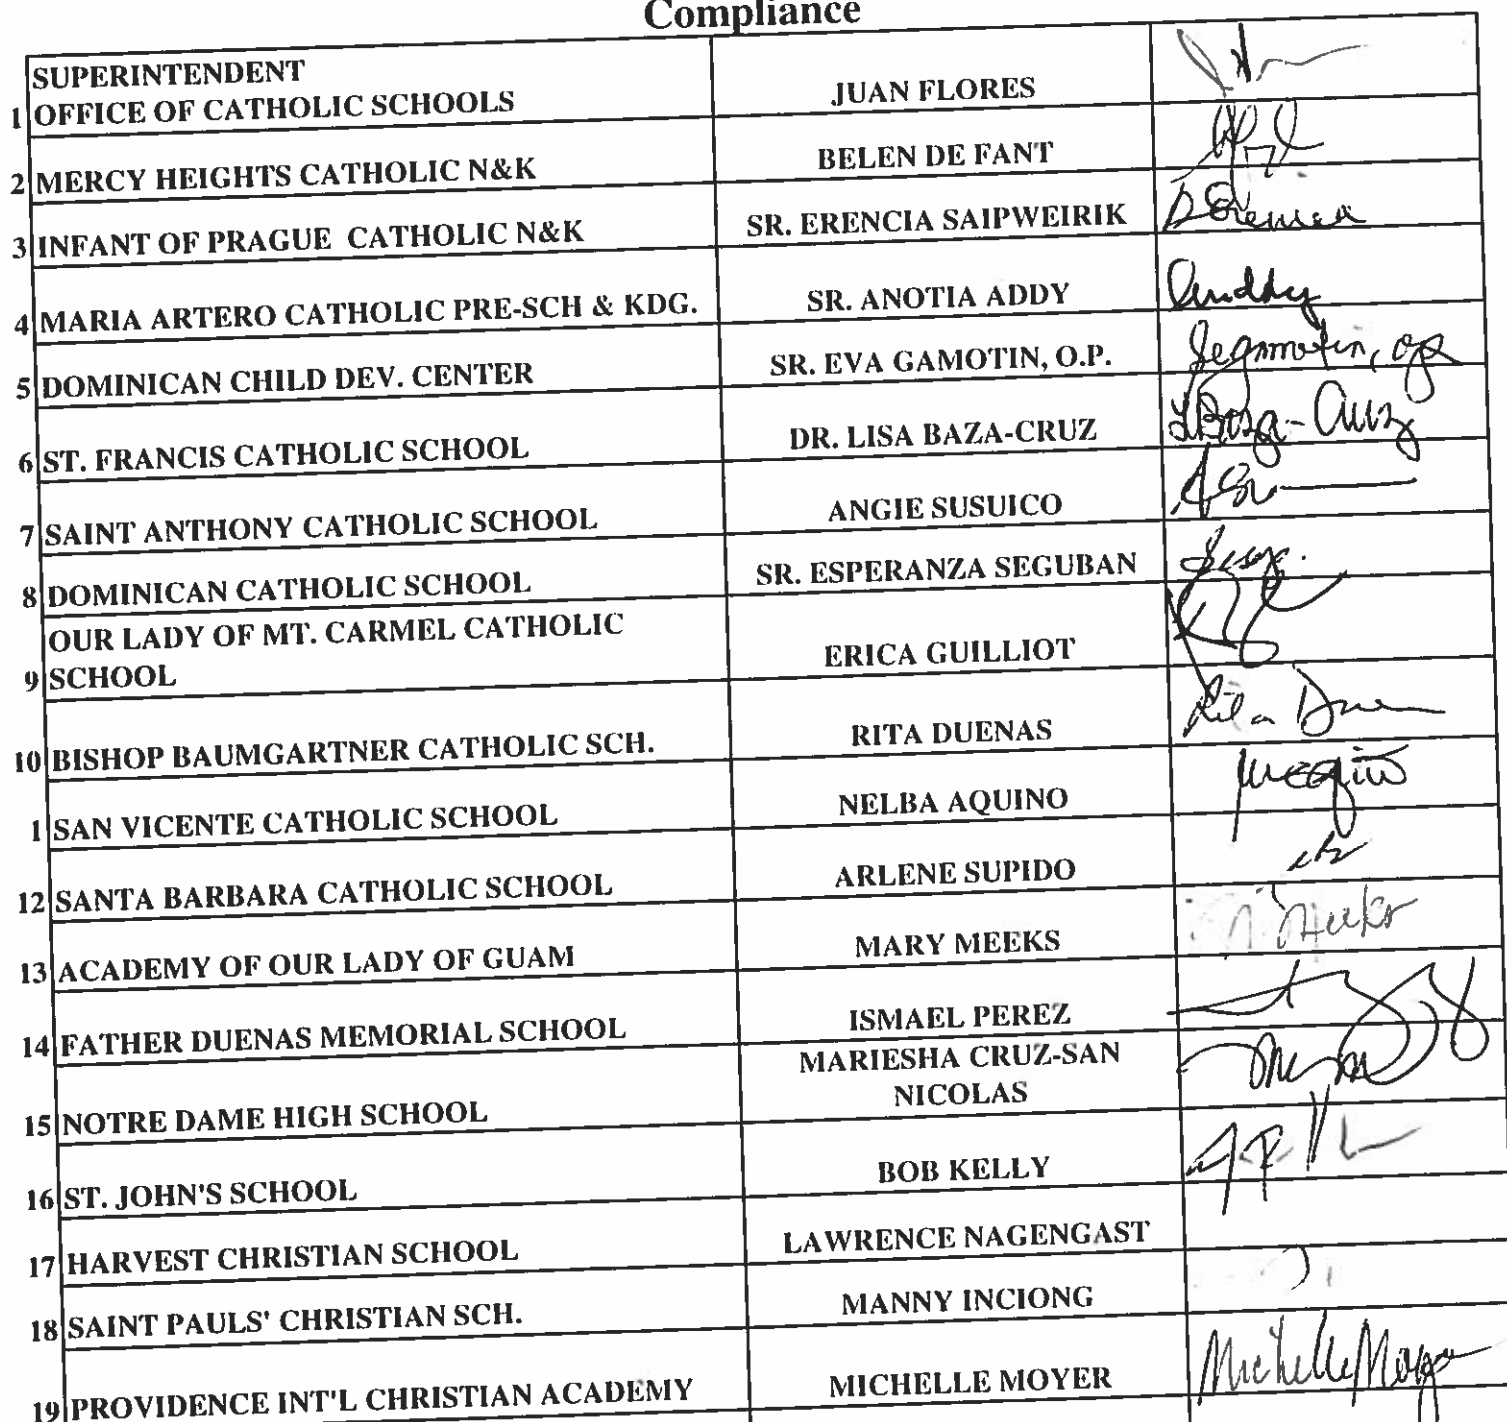 Compliance
SUPERINTENDENT
1 OFFICE OF CATHOLIC SCHOOLS JUAN FLORES
2 MERCY HEIGHTS CATHOLIC N&K BELEN DE FANT
3 INFANT OF PRAGUE CATHOLIC N&K SR. ERENCIA SAIPWEIRIK
4 MARIA ARTERO CATHOLIC PRE-SCH & KDG. SR. ANOTIA ADDY
5 DOMINICAN CHILD DEV. CENTER SR. EVA GAMOTIN, O.P.
6 ST. FRANCIS CATHOLIC SCHOOL DR. LISA BAZA-CRUZ LBaza-Cruz
7 SAINT ANTHONY CATHOLIC SCHOOL ANGIE SUSUICO
8 DOMINICAN CATHOLIC SCHOOL SR. ESPERANZA SEGUBAN
OUR LADY OF MT. CARMEL CATHOLIC
9 SCHOOL ERICA GUILLIOT
10 BISHOP BAUMGARTNER CATHOLIC SCH. RITA DUENAS Rita Duen
1 SAN VICENTE CATHOLIC SCHOOL NELBA AQUINO
12 SANTA BARBARA CATHOLIC SCHOOL ARLENE SUPIDO
13 ACADEMY OF OUR LADY OF GUAM MARY MEEKS Meeks
14 FATHER DUENAS MEMORIAL SCHOOL ISMAEL PEREZ
MARIESHA CRUZ-SAN
15 NOTRE DAME HIGH SCHOOL NICOLAS
16 ST. JOHN'S SCHOOL BOB KELLY
17 HARVEST CHRISTIAN SCHOOL LAWRENCE NAGENGAST
18 SAINT PAULS' CHRISTIAN SCH. MANNY INCIONG
19 PROVIDENCE INT'L CHRISTIAN ACADEMY MICHELLE MOYER Michelle Moyer